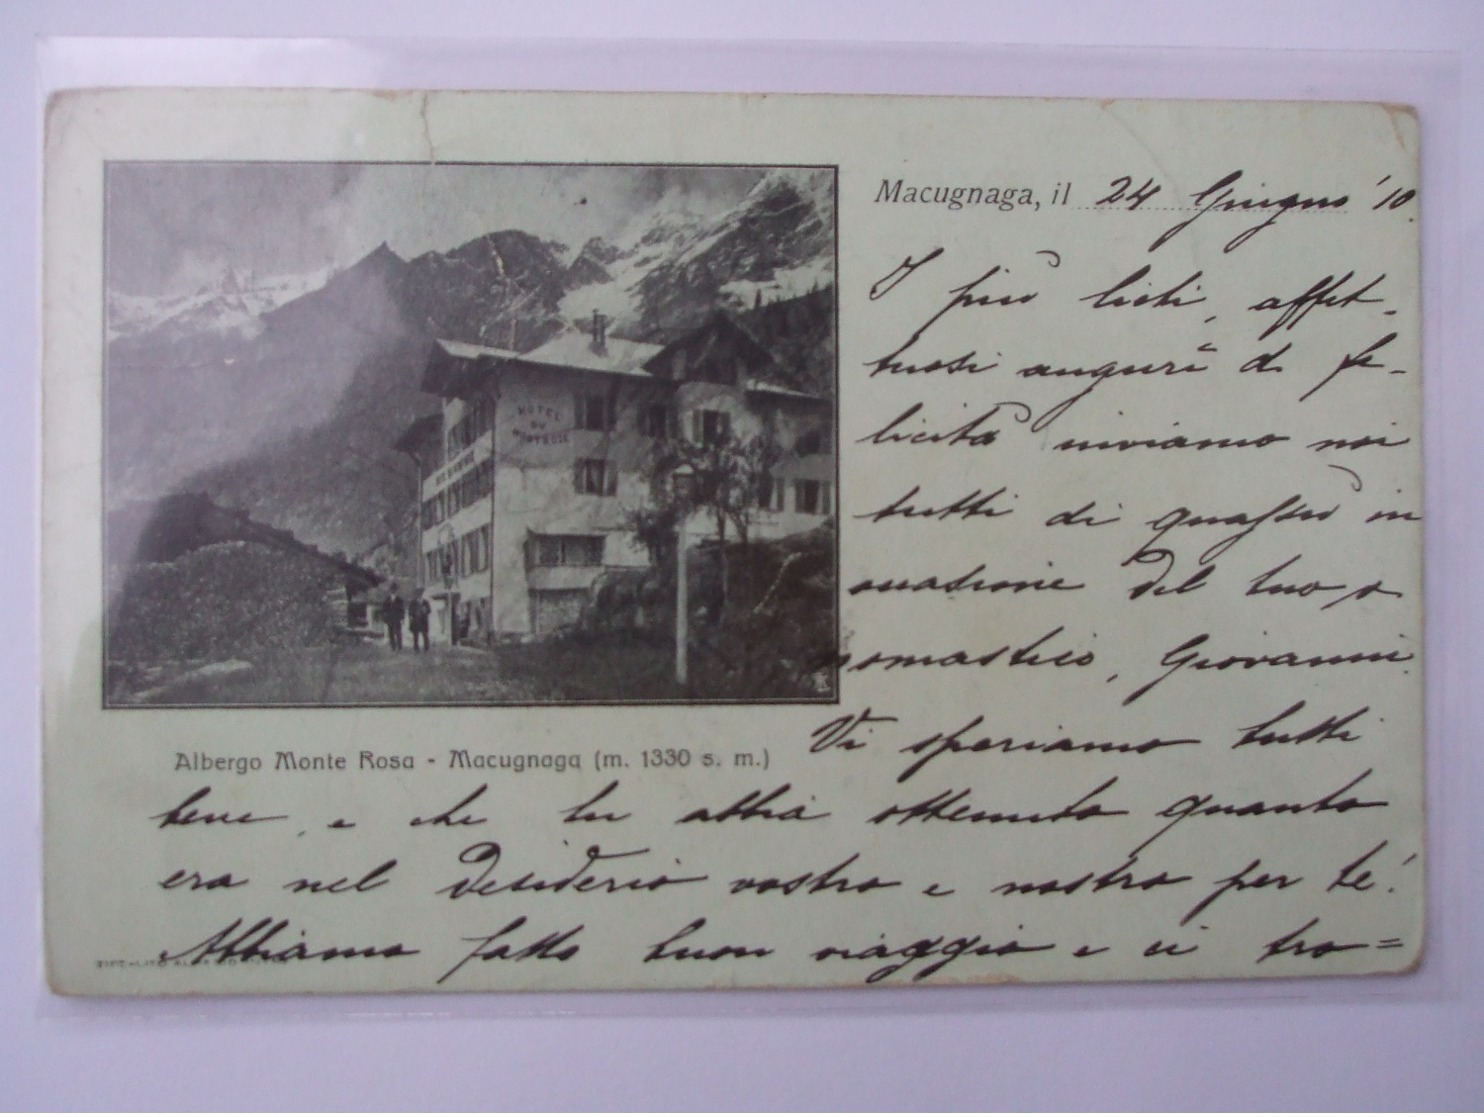 Macugnaga, il 24 Giugno '10.
I più lieti, affet-
tuosi auguri di fe-
licità inviamo noi
tutti di quassù in
occasione del tuo o
nomastico, Giovanni.
Vi speriamo tutti
bene, e che tu abbia ottenuto quanto
era nel desiderio vostro e nostro per té!
Abbiamo fatto buon viaggio e ci tro=
HOTEL
DU
MONTROSE
Albergo Monte Rosa - Macugnaga (m. 1330 s. m.)